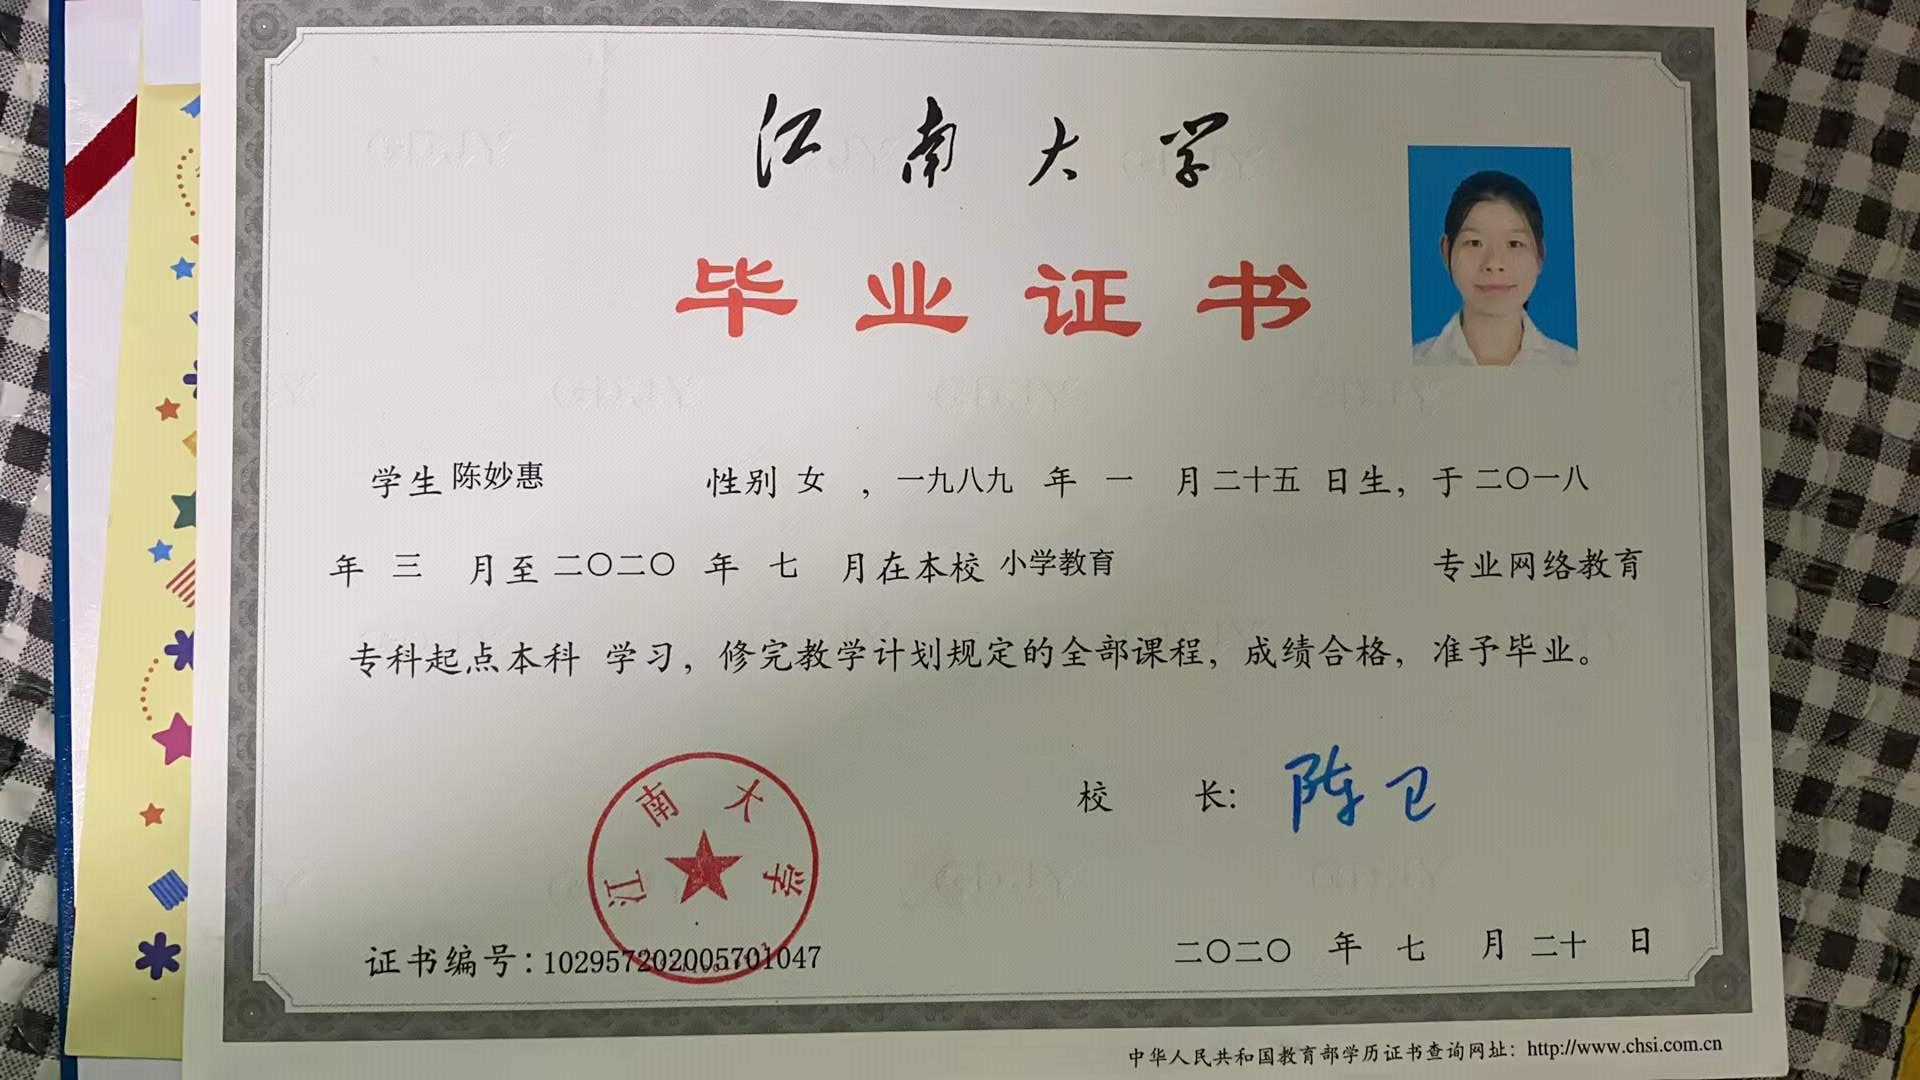 江南大学
毕业证书
学生 陈妙惠 性别 女 ，一九八九 年 一 月 二十五 日生，于 二〇一八
年 三 月至 二〇二〇 年 七 月在本校 小学教育 专业网络教育
专科起点本科 学习，修完教学计划规定的全部课程，成绩合格，准予毕业。
江南大学
校 长: 陈卫
证书编号:102957202005701047
二〇二〇 年 七 月 二十 日
中华人民共和国教育部学历证书查询网址：http://www.chsi.com.cn